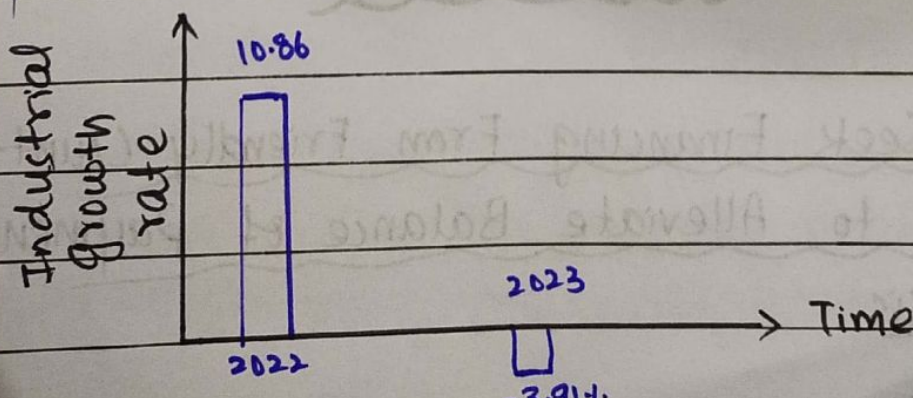 Industrial
growth
rate
10.86
2022
2023
Time